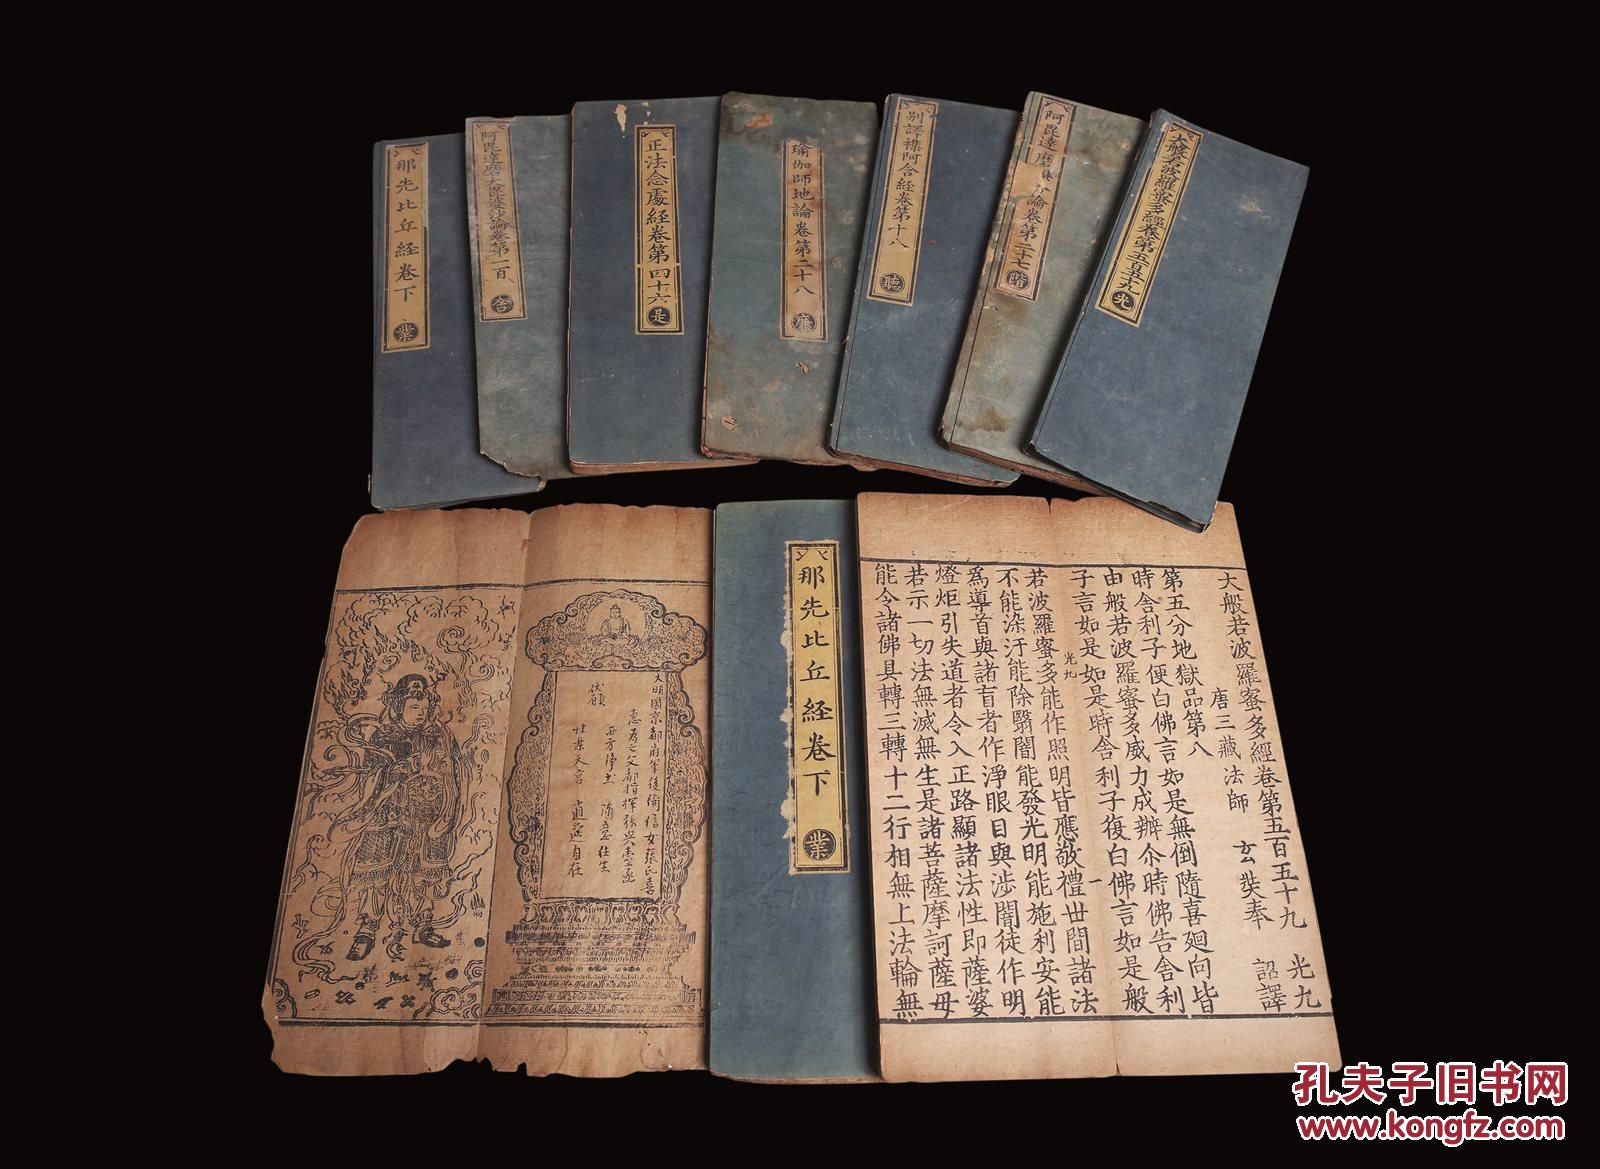 那先比丘経卷下
業
阿毘達磨大毘婆沙論卷第一百
舍
正法念處経卷第四十六
是
瑜伽師地論卷第二十八
廉
別譯襍阿含経卷第十八
聽
阿毘達磨集
論卷第二十七
階
大般若波羅蜜多経卷第五百五十九
光
大明國京都府軍後衛信女張氏喜
惠
文都指揮孫
西方淨土
隨意往生
伏願
天宮
逍遥自在
那先比丘経卷下
業
大般若波羅蜜多經卷第五百五十九
光九
唐三藏法師
玄奘奉
詔譯
第五分地獄品第八
時舎利子便白佛言如是無倒隨喜廻向皆
由般若波羅蜜多威力成辨尒時佛告舎利
子言如是如是時舎利子復白佛言如是般
光九
一
若波羅蜜多能作照明皆應敬禮世間諸法
不能染汙能除翳闇能發光明能施利安能
爲導首與諸盲者作淨眼目與涉闇徒作明
燈炬引失道者令入正路顯諸法性即薩婆
若示一切法無滅無生是諸菩薩摩訶薩母
能令諸佛具轉三轉十二行相無上法輪無
孔夫子旧书网
www.kongfz.com